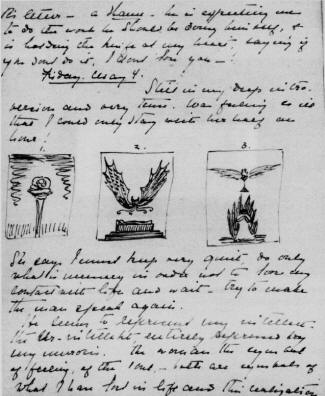 his letter – a shame. he is expecting me
to do the work he should be doing himself, &
is holding the knife at my heart, saying if
you dont do it, I dont love you –
Friday. May 4.
Still in my deep intro-
version and very tense. Was feeling so ill
that I could only stay with her half an
hour!
2.
3.
She says I must keep very quiet, do only
what is necessary in order not to lose any
contact with life and wait – try to make
the man speak again.
He seems to represent my intellect
the entirely repressed by
my neurosis. the woman the symbol
of feeling, of the soul, – both are symbols of
what I have lost in life and this realization